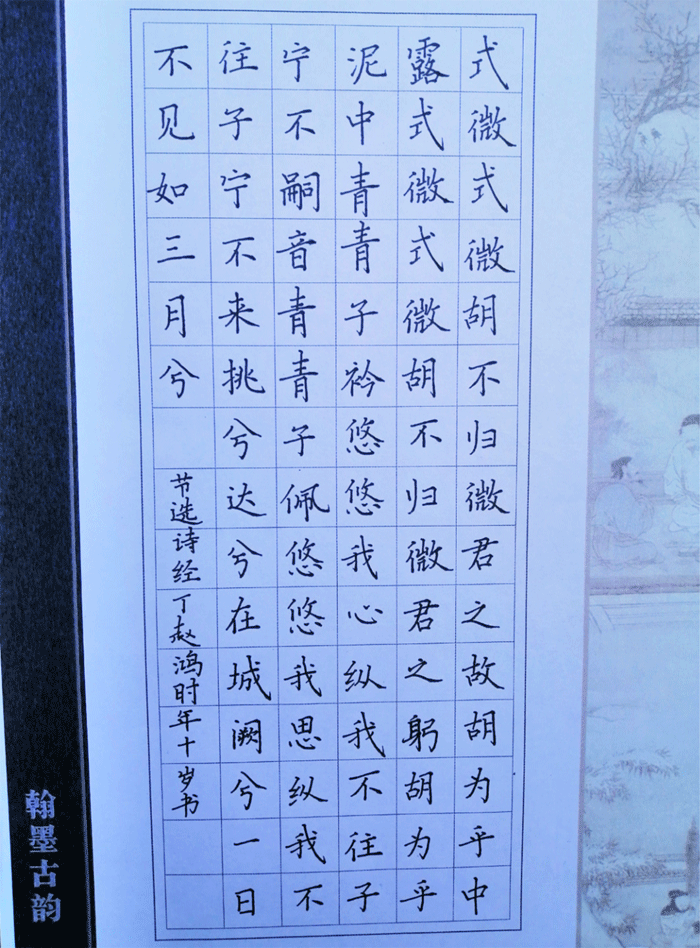 式微式微胡不归微君之故胡为乎中
露式微式微胡不归微君之躬胡为乎
泥中青青子衿悠悠我心纵我不往子
宁不嗣音青青子佩悠悠我思纵我不
往子宁不来挑兮达兮在城阙兮一日
不见如三月兮
节选诗经丁赵鸿时年十岁书
翰墨古韵